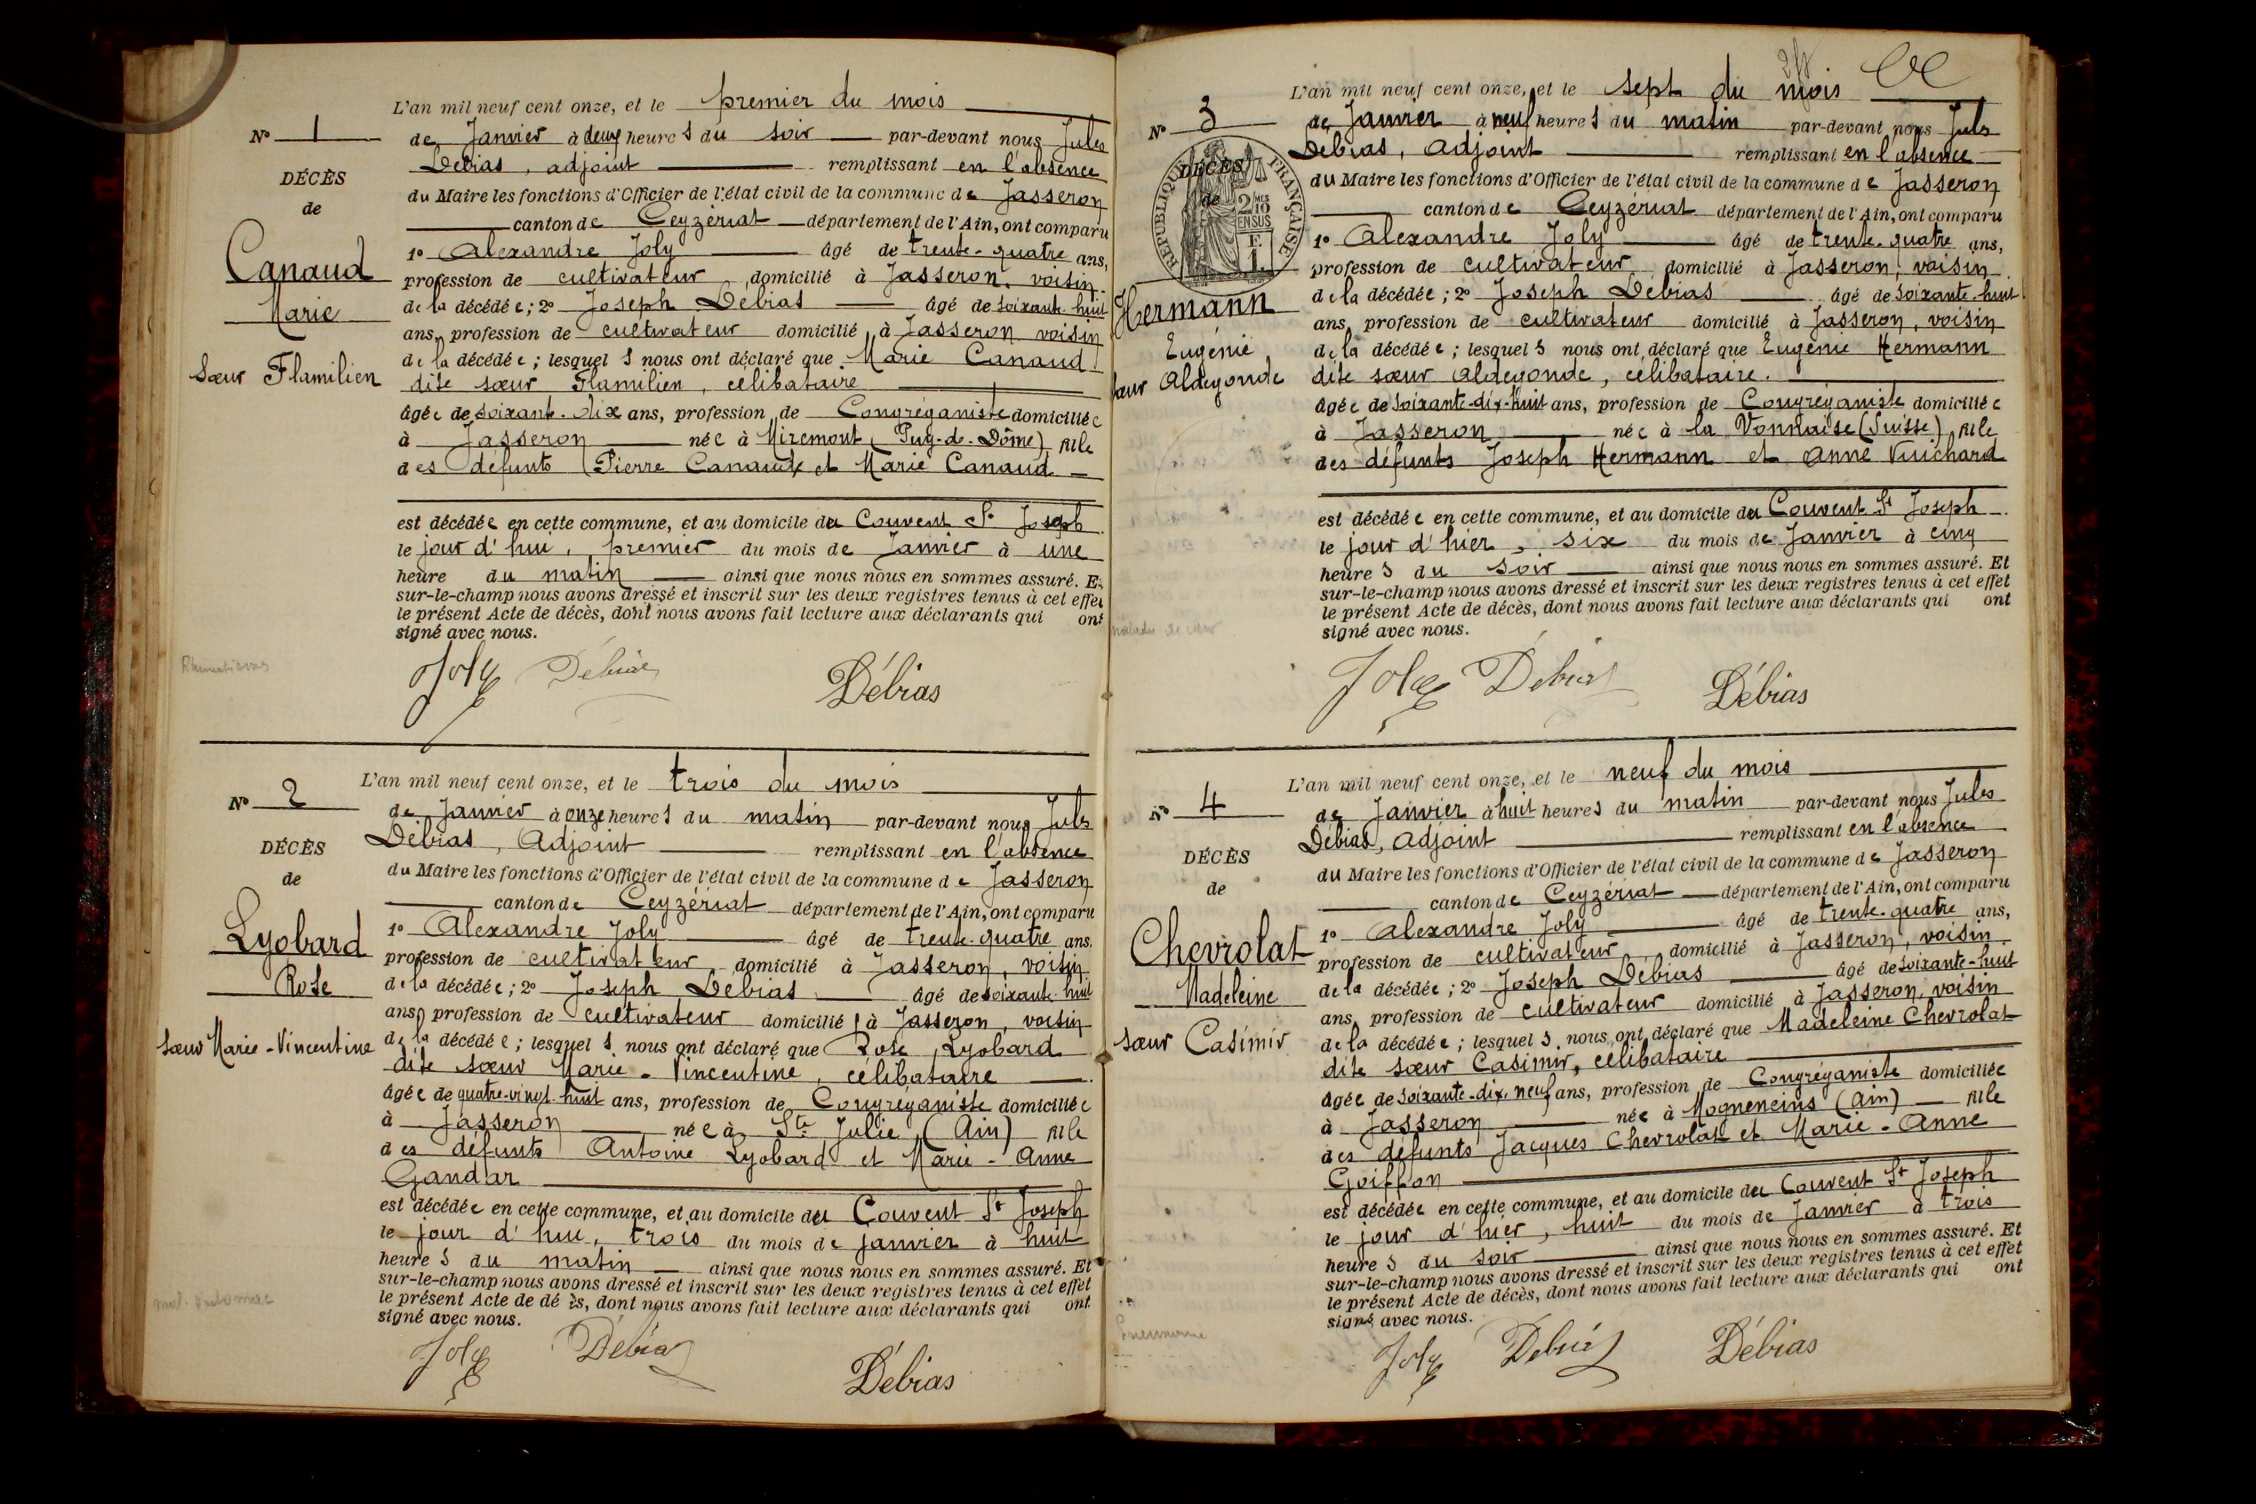 L'an mil neuf cent onze, et le premier du mois
N° 1
de Janvier à deux heures du soir par-devant nous Jules
Debias, adjoint remplissant en l'absence
DÉCÈS
du Maire les fonctions d'Officier de l'état civil de la commune de Jasseron
de
canton de Ceyzériat département de l'Ain, ont comparu
1° Alexandre Joly âgé de trente-quatre ans,
Canaud
profession de cultivateur domicilié à Jasseron, voisin
Marie
de la décédée; 2° Joseph Debias âgé de soixante-huit
ans, profession de cultivateur domicilié à Jasseron voisin
de la décédée; lesquels nous ont déclaré que Marie Canaud
Sœur Flamilien
dite sœur Flamilien, célibataire
âgée de soixante-dix ans, profession de Congréganiste domiciliée
à Jasseron née à Miremont (Puy-de-Dôme) fille
des défunts Pierre Canaud et Marie Canaud
est décédée en cette commune, et au domicile du Couvent St Joseph
le jour d'hui, premier du mois de Janvier à une
heure du matin ainsi que nous nous en sommes assuré. Et
sur-le-champ nous avons dressé et inscrit sur les deux registres tenus à cet effet
le présent Acte de décès, dont nous avons fait lecture aux déclarants qui ont
signé avec nous.
Joly Débias Débias
L'an mil neuf cent onze, et le trois du mois
N° 2
de Janvier à onze heures du matin par-devant nous Jules
Débias, Adjoint remplissant en l'absence
DÉCÈS
du Maire les fonctions d'Officier de l'état civil de la commune de Jasseron
de
canton de Ceyzériat département de l'Ain, ont comparu
1° Alexandre Joly âgé de trente-quatre ans.
Lyobard
profession de cultivateur domicilié à Jasseron, voisin
Rose
de la décédée; 2° Joseph Debias âgé de soixante-huit
ans, profession de cultivateur domicilié à Jasseron, voisin
Sœur Marie-Vincentine
de la décédée; lesquels nous ont déclaré que Rose Lyobard
dite sœur Marie-Vincentine, célibataire
âgée de quatre-vingt-huit ans, profession de Congréganiste domiciliée
à Jasseron née à Ste Julie (Ain) fille
des défunts Antoine Lyobard et Marie-Anne
Gandar
est décédée en cette commune, et au domicile du Couvent St Joseph
le jour d'hui, trois du mois de janvier à huit
heures du matin ainsi que nous nous en sommes assuré. Et
sur-le-champ nous avons dressé et inscrit sur les deux registres tenus à cet effet
le présent Acte de dé ès, dont nous avons fait lecture aux déclarants qui ont
signé avec nous.
Joly Débias Débias
L'an mil neuf cent onze, et le sept du mois
N° 3
de Janvier à neuf heures du matin par-devant nous Jules
Debias, adjoint remplissant en l'absence
DÉCÈS
du Maire les fonctions d'Officier de l'état civil de la commune de Jasseron
de
RÉPUBLIQUE FRANÇAISE
2/10 EN SUS
F. 1.
canton de Ceyzériat département de l'Ain, ont comparu
1° Alexandre Joly âgé de trente-quatre ans,
profession de cultivateur domicilié à Jasseron, voisin
Hermann
de la décédée; 2° Joseph Debias âgé de soixante-huit
ans, profession de cultivateur domicilié à Jasseron, voisin
Eugénie
de la décédée; lesquels nous ont déclaré que Eugénie Hermann
sœur Aldegonde
dite sœur Aldegonde, célibataire.
âgée de soixante-dix-huit ans, profession de Congréganiste domiciliée
à Jasseron née à la Vonnaise (Suisse) fille
des défunts Joseph Hermann et Anne Vuichard
est décédée en cette commune, et au domicile du Couvent St Joseph
le jour d'hier, six du mois de Janvier à cinq
heures du soir ainsi que nous nous en sommes assuré. Et
sur-le-champ nous avons dressé et inscrit sur les deux registres tenus à cet effet
le présent Acte de décès, dont nous avons fait lecture aux déclarants qui ont
signé avec nous.
Joly Débias Débias
L'an mil neuf cent onze, et le neuf du mois
N° 4
de Janvier à huit heures du matin par-devant nous Jules
Debias, adjoint remplissant en l'absence
DÉCÈS
du Maire les fonctions d'Officier de l'état civil de la commune de Jasseron
de
canton de Ceyzériat département de l'Ain, ont comparu
1° Alexandre Joly âgé de trente-quatre ans,
Chevrolat
profession de cultivateur domicilié à Jasseron, voisin
Madeleine
de la décédée; 2° Joseph Debias âgé de soixante-huit
ans, profession de cultivateur domicilié à Jasseron, voisin
sœur Casimir
de la décédée; lesquels nous ont déclaré que Madeleine Chevrolat
dite sœur Casimir, célibataire
âgée de soixante-dix-neuf ans, profession de Congréganiste domiciliée
à Jasseron née à Mogneneins (Ain) fille
des défunts Jacques Chevrolat et Marie-Anne
Goiffon
est décédée en cette commune, et au domicile du Couvent St Joseph
le jour d'hier, huit du mois de Janvier à trois
heures du soir ainsi que nous nous en sommes assuré. Et
sur-le-champ nous avons dressé et inscrit sur les deux registres tenus à cet effet
le présent Acte de décès, dont nous avons fait lecture aux déclarants qui ont
signé avec nous.
Pneumonie
Joly Débias Débias